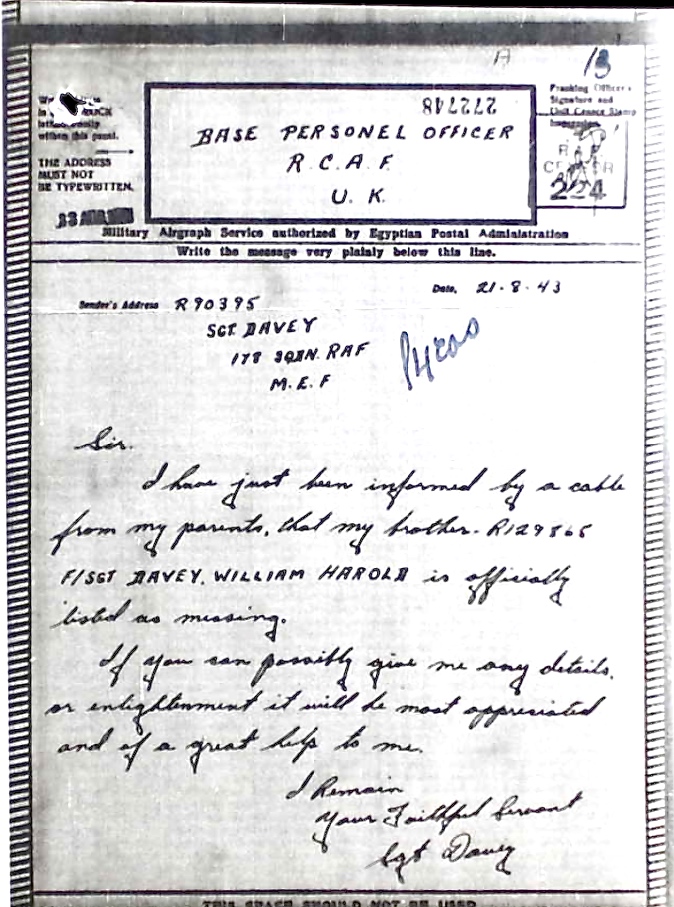 A 13
272748
BASE PERSONEL OFFICER
R.C.A.F.
U.K.
THE ADDRESS
MUST NOT
BE TYPEWRITTEN.
Franking Officer's
Signature and
Unit Censor Stamp
224
Military Airgraph Service authorized by Egyptian Postal Administration
Write the message very plainly below this line.
Date, 21-8-43
Sender's Address R90395
SGT DAVEY
178 SQDN. RAF
M.E.F
Sir.
I have just been informed by a cable
from my parents, that my brother - R129865
F/SGT DAVEY, WILLIAM HAROLD is officially
listed as missing.
If you can possibly give me any details,
or enlightenment it will be most appreciated
and of a great help to me.
I Remain
Your Faithful Servant
Sgt Davey
THIS SPACE SHOULD NOT BE USED